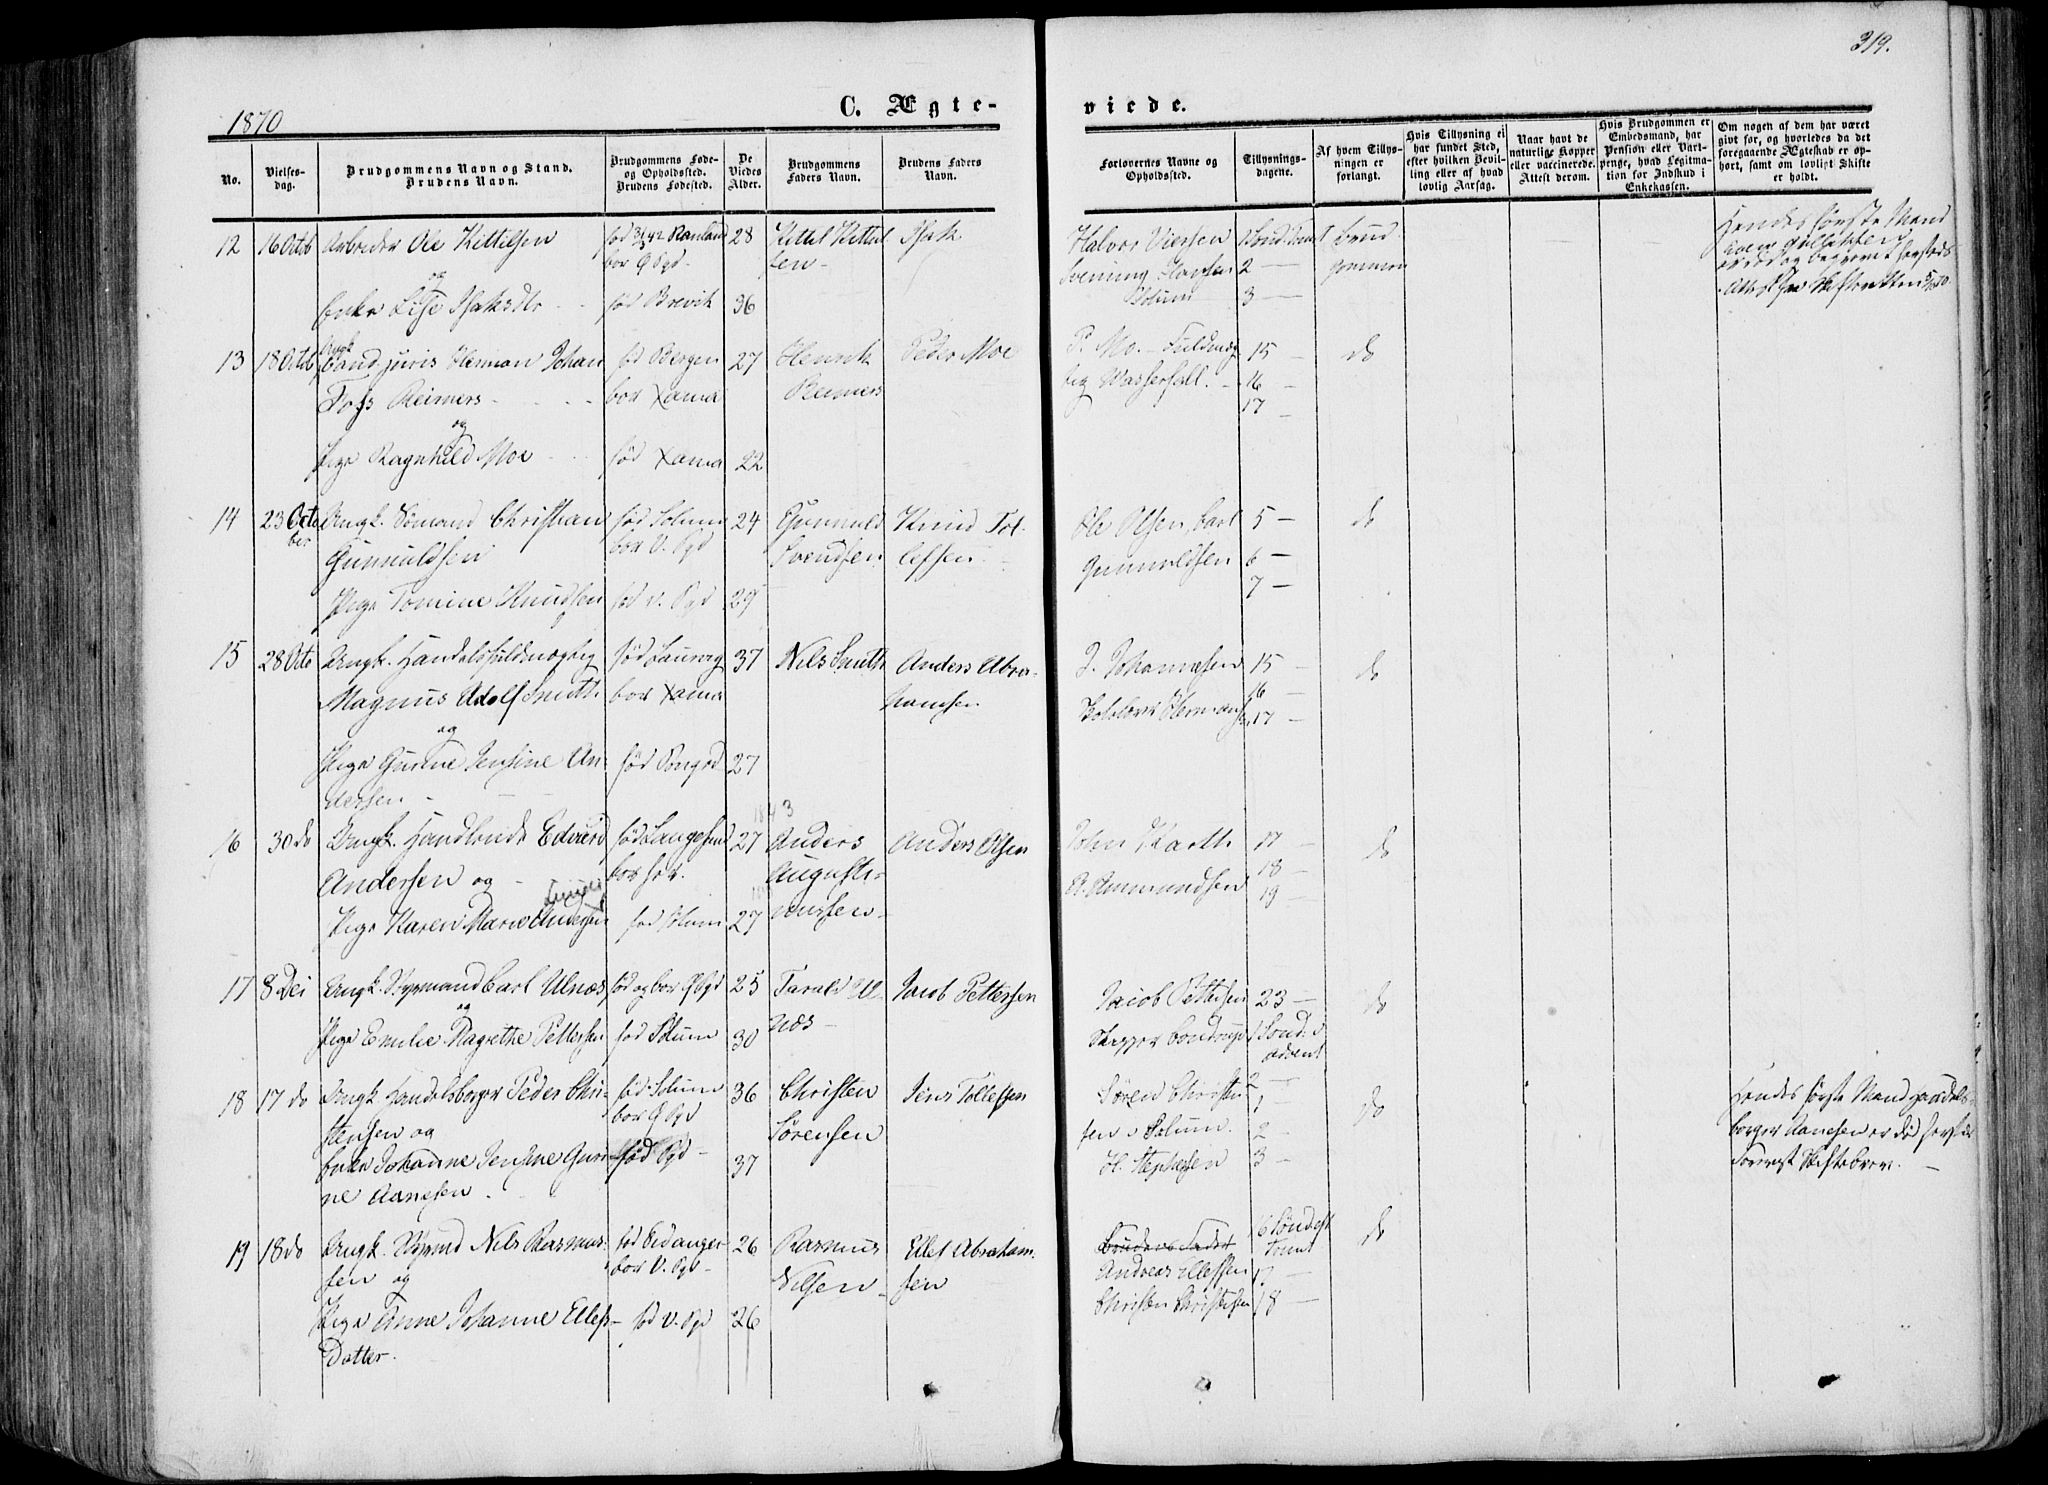 319.
1870
C. Ægte-
viede.
No.
Vielses-
dag.
Brudgommens Navn og Stand.
Brudens Navn.
Brudgommens Føde-
og Opholdssted.
Brudens Fødested.
De
Viedes
Alder.
Brudgommens
Faders Navn.
Brudens Faders
Navn.
Forlovernes Navne og
Opholdssted.
Tillysnings-
dagene.
Af hvem Tillys-
ningen er
forlangt.
Hvis Tillysning ei
har fundet Sted,
efter hvilken Bevil-
ling eller af hvad
lovlig Aarsag.
Naar havt de
naturlige Kopper
eller vaccinerede.
Attest derom.
Hvis Brudgommen er
Embedsmand, har
Pension eller Vart-
penge, hvad Legitima-
tion for Indskud i
Enkekassen.
Om nogen af dem har været
gift før, og hvorledes da det
foregaaende Ægteskab er op-
hørt, samt om lovligt Skifte
er holdt.
12 16 Octb Arbeider Ole Kittilsen
og
Enke Lise Isaksdtr
fød Rauland
bor Ø Pgd
fød Brevik
28
36
Kittil Kittil
sen
Isak
Halvor
Svenning Hansen
Solum
2
3
Brud
gommen
Hendes første Mand
13 18 Octb Ungk. Cand juris Herman Johan
Foss Reimers
og
Pige Ragnhild Moe
fød Bergen
bor Xania
fød Xania
27
22
Henrik
Reimers
Peder Moe
P. Mo. Fuldmæg
tig Wasserfall.
15
16
17
do
14 23 Octo
ber
Ungk. Sømand Christian
Gunnuldsen
Pige Tomine Knudsen
fød Solum
bor V. Pgd
fød V. Pgd
24
29
Gunnuld
Svendsen
Knud Tol-
lefsen
Ole Olsen, Carl
Gunnuldsen
5
6
7
do
15 28 Octo Ungk. Handelsfuldmægtig
Magnus Adolf Smith
og
Pige Gurine Jensine An-
dersen
fød Laurvig
bor Xania
fød Porsgrd
37
27
Nils Smith
Anders Abra-
hamsen
J. Johannesen
15
16
17
do
16 30 do Ungk. Handlende Edvard
Andersen og
Pige Karen Marie Andersen
fød Langesund
bor her.
fød
1843
27
27
Anders
Augusti-
nussen
Anders Olsen
John
Amundsen
17
18
19
do
17 8 Dec Ungk. Styrmand Carl Ulnæs
og
Pige Emilie Magrethe Pettersen
fød og bor Ø Pgd
fød Solum
25
30
Tarald Ul-
næs
Jacob Pettersen
Jacob Pettersen
23
1 Sønd. i
Advent
2
do
18 17 do Ungk. Handelsborger Peder Chri-
stensen og
Enke Johanne Jensine Guri-
ne Aanesen
fød Solum
bor Ø Pgd
fød Pgd
36
37
Christen
Sørensen
Jens Tollefsen
Søren Christen
sen Solum
H. Stephensen
1
2
3
do
Hendes første Mand Handels-
borger Aanesen er død
Foreviist Skiftebrev.
19 18 do Ungk. Styrmd Nils Rasmus-
sen og
Pige Anne Johanne Ellefs-
Datter
fød Eidanger
bor V. Pgd
fød V. Pgd
26
26
Rasmus
Nilsen
Ellef Abraham-
sen
Brudens Fader
Andreas Ellefsen
Christen Christensen
16 Sønd eft
Trinit
17
18
do